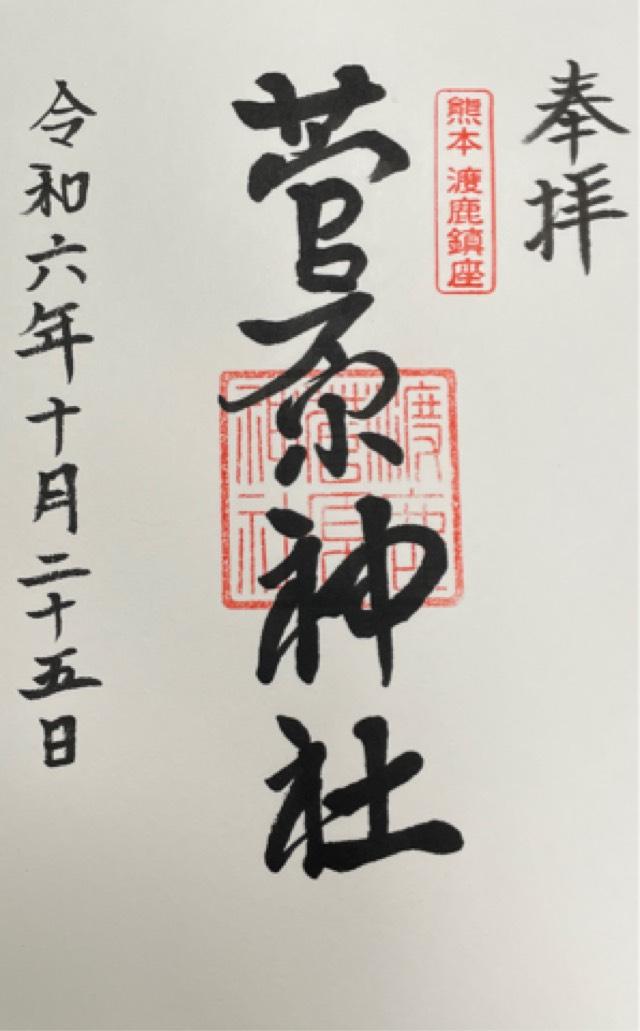 奉拝
熊本 渡鹿鎮座
菅原神社
渡鹿
菅原
神社
令和六年十月二十五日